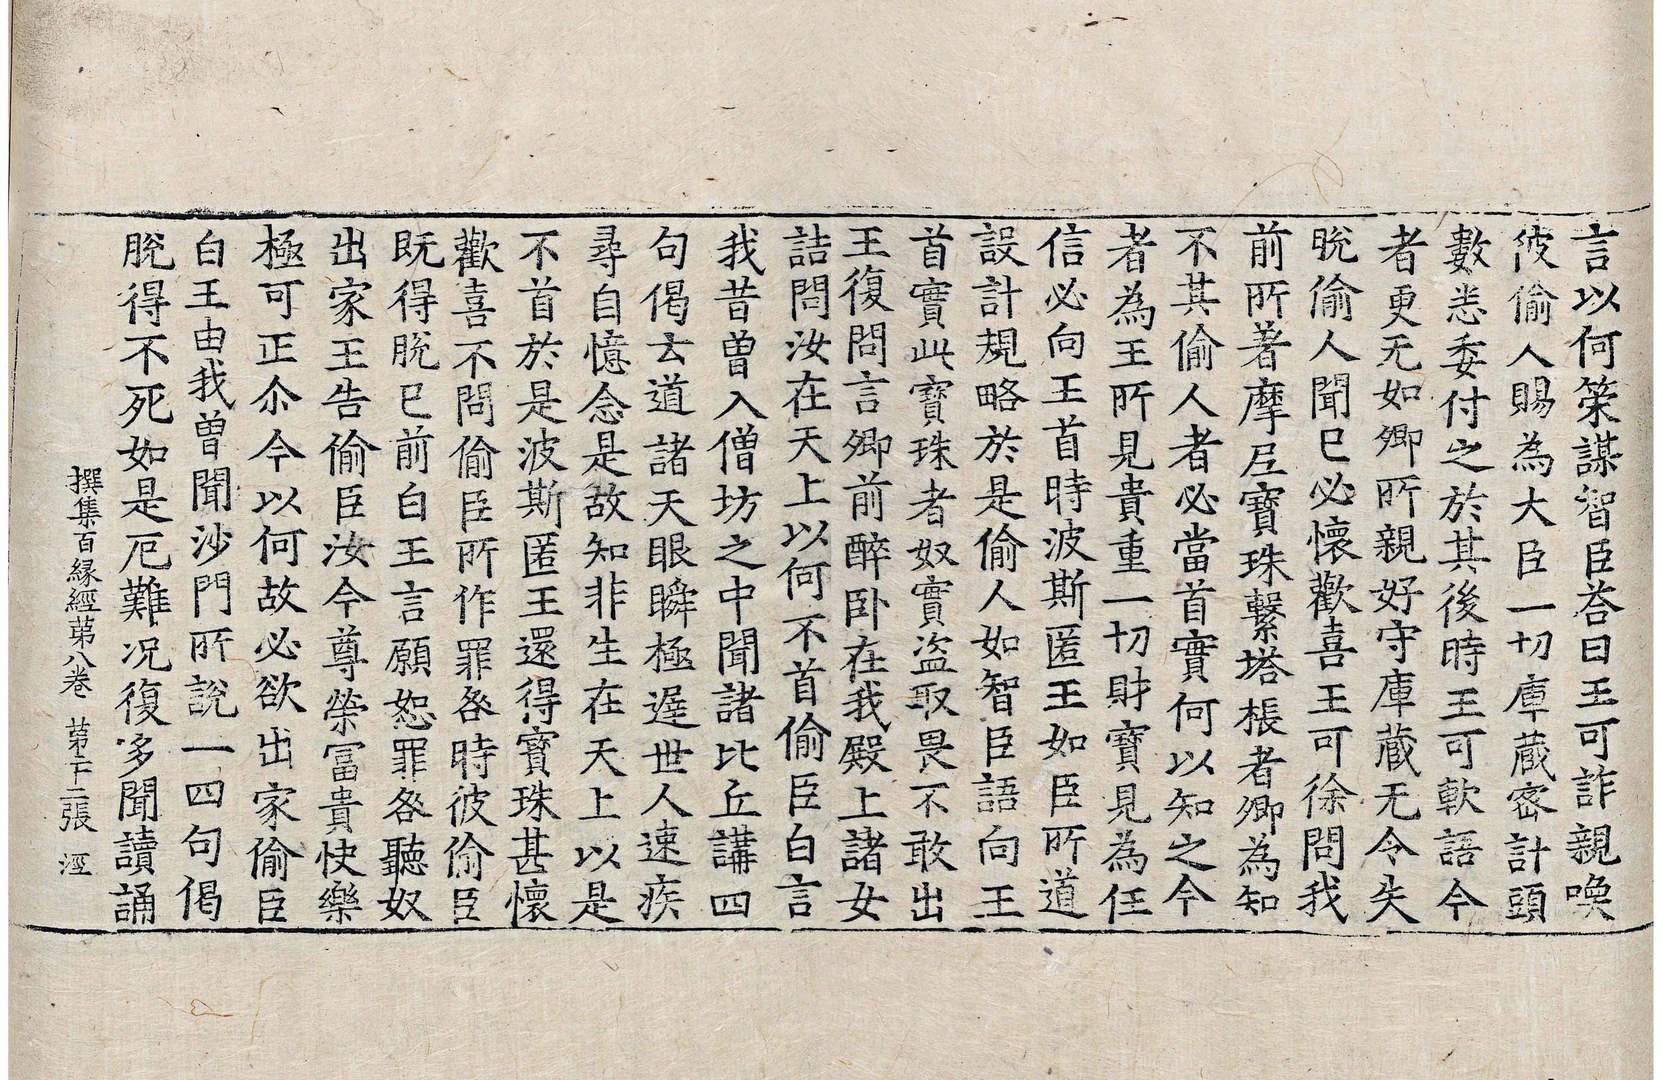 言以何策謀智臣荅曰王可詐親喚
彼偷人賜為大臣一切庫蔵密計頭
數悉委付之於其後時王可軟語今
者更无如卿所親好守庫蔵无令失
脫偷人聞已必懷歡喜王可徐問我
前所著摩尼寶珠繫塔棖者卿為知
不其偷人者必當首實何以知之今
者為王所見貴重一切財寶見為任
信必向王首時波斯匿王如臣所道
設計規略於是偷人如智臣語向王
首實此寶珠者奴實盗取畏不敢出
王復問言卿前醉卧在我殿上諸女
詰問汝在天上以何不首偷臣白言
我昔曾入僧坊之中聞諸比丘講四
句偈云道諸天眼瞬極遲世人速疾
尋自憶念是故知非生在天上以是
不首於是波斯匿王還得寶珠甚懷
歡喜不問偷臣所作罪咎時彼偷臣
既得脫已前白王言願恕罪咎聽奴
出家王告偷臣汝今尊榮冨貴快樂
極可正尒今以何故必欲出家偷臣
白王由我曽聞沙門所說一四句偈
脫得不死如是厄難况復多聞讀誦
撰集百縁經苐八卷 苐十二張 涇